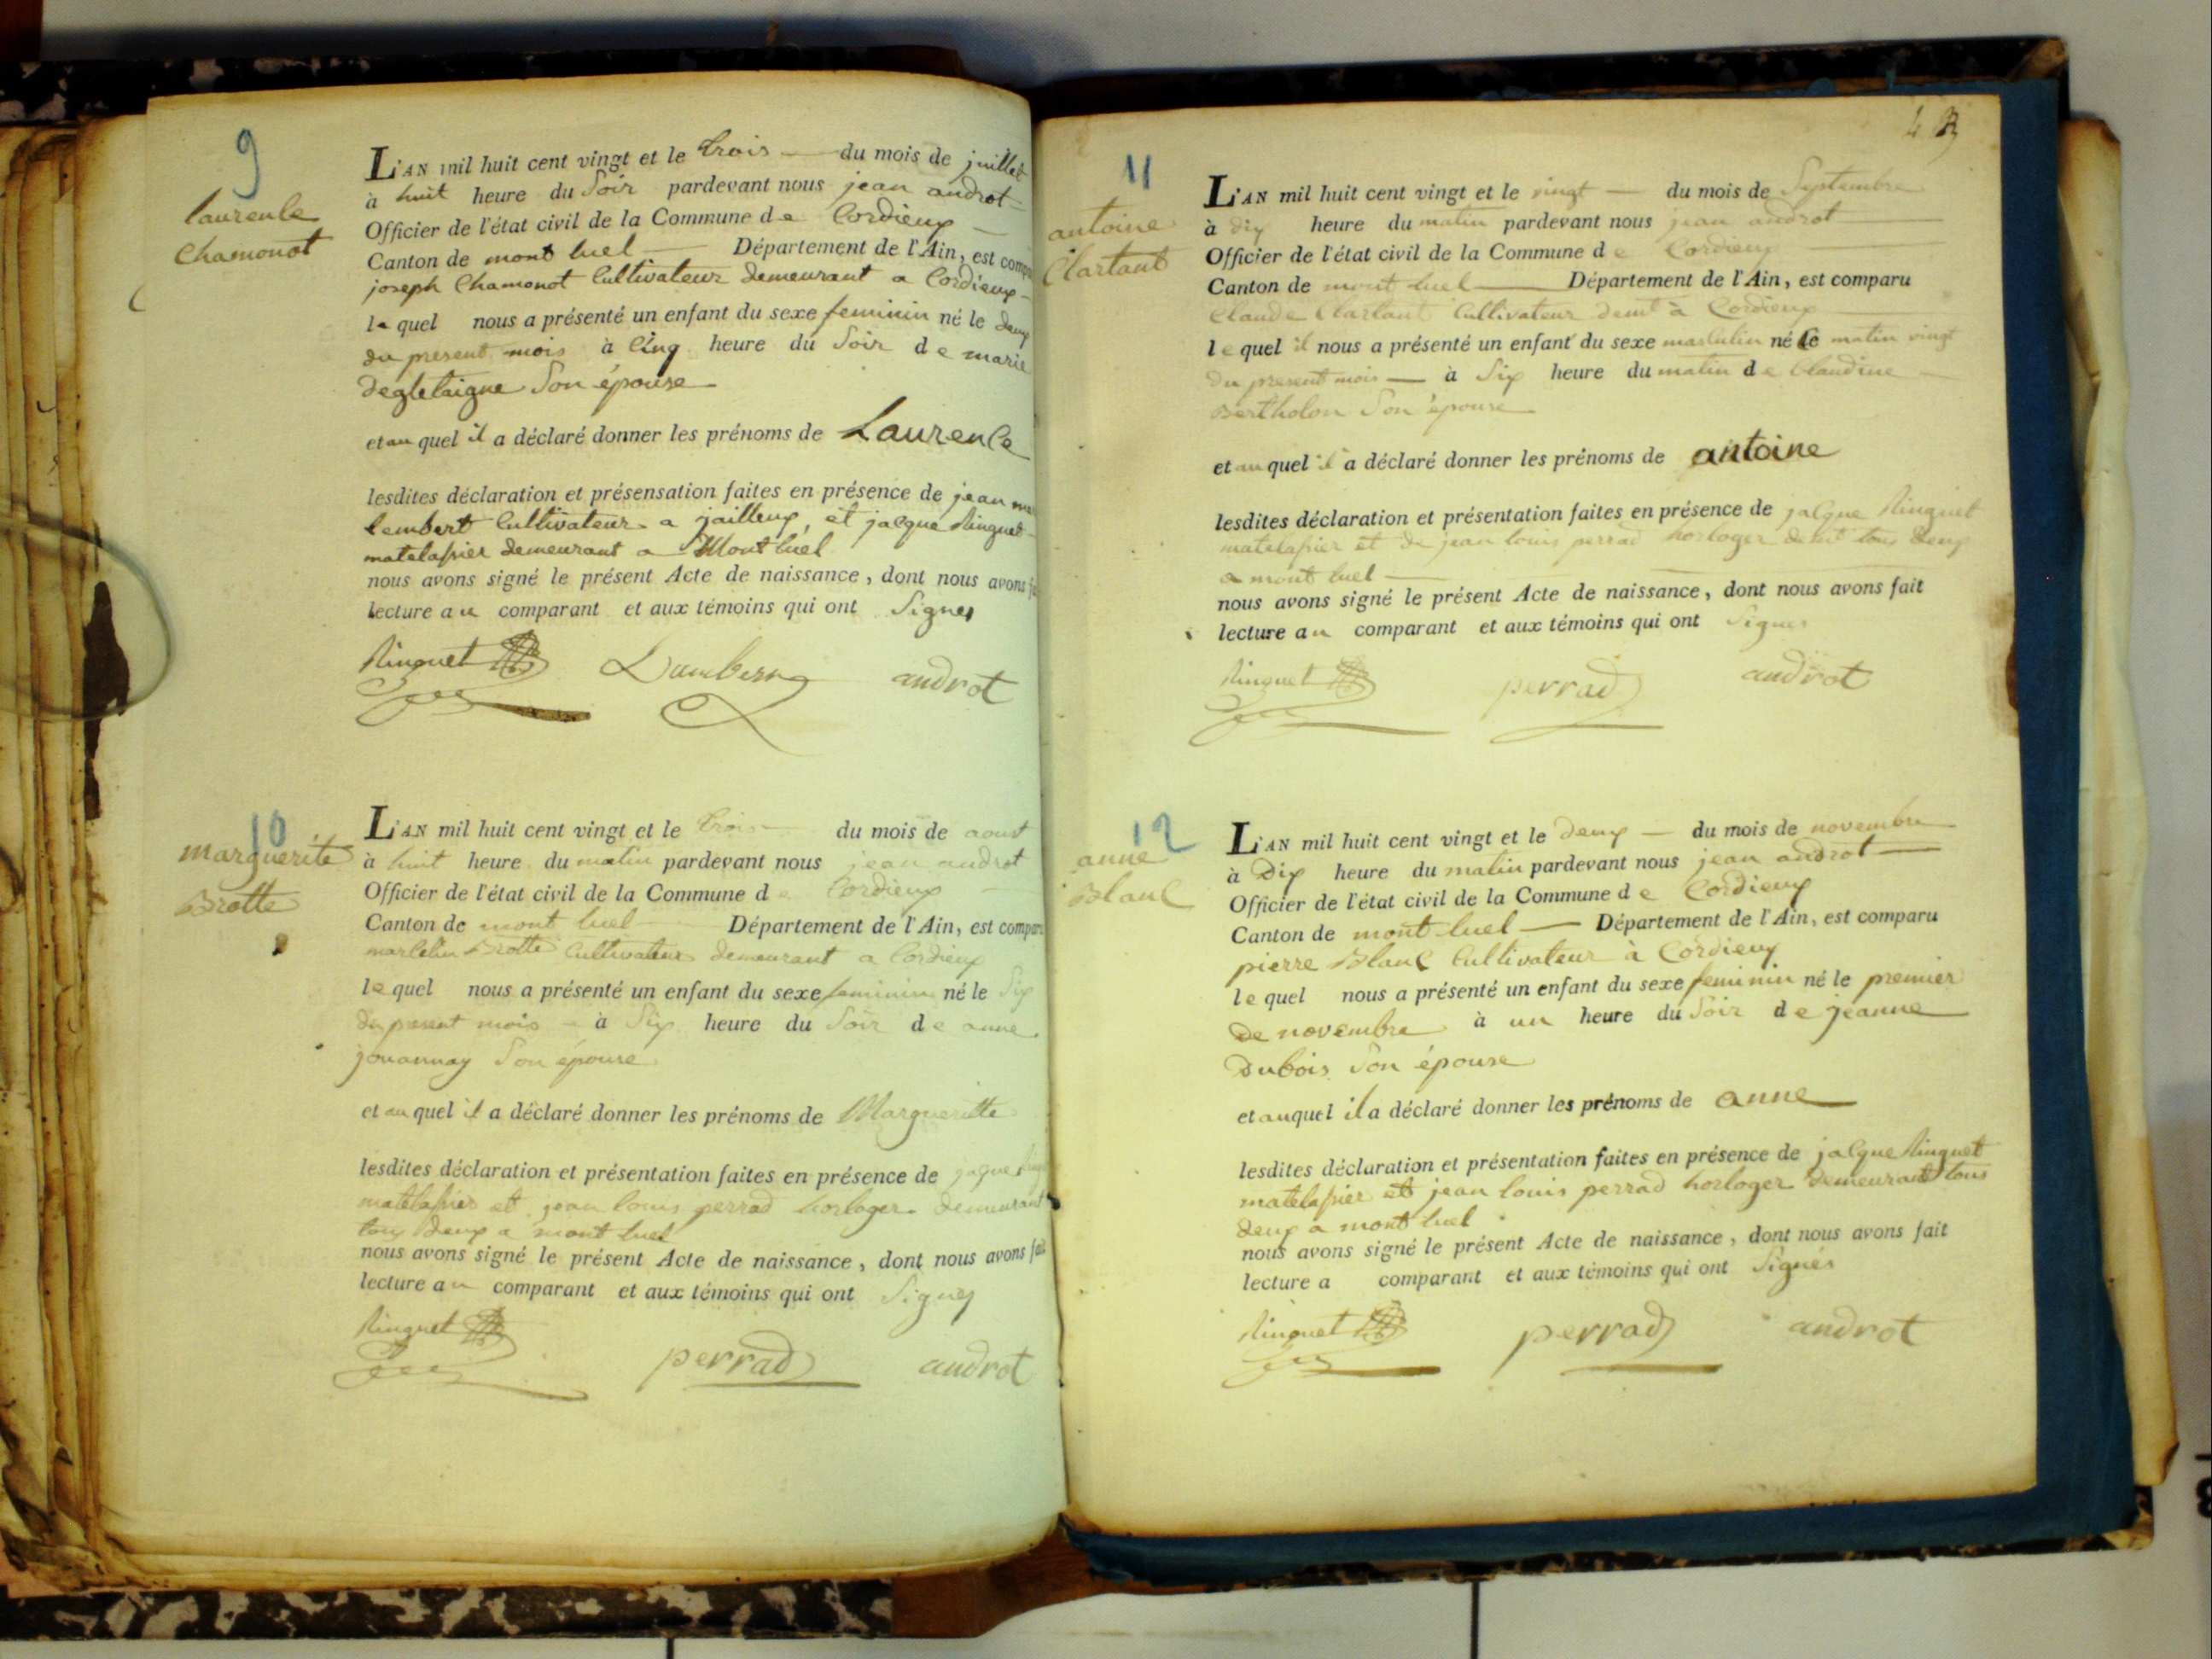 9
laurence
Chamonot
L'AN mil huit cent vingt et le trois du mois de juillet
à huit heure du Soir pardevant nous jean androt
Officier de l'état civil de la Commune de Cordieux
Canton de mont luel Département de l'Ain, est
joseph Chamonot Cultivateur demeurant a Cordieux
le quel nous a présenté un enfant du sexe feminin né le deux
du present mois à Cinq heure du Soir de marie
Son épouse
et au quel il a déclaré donner les prénoms de Laurence
lesdites déclaration et présensation faites en présence de jean
Cultivateur a jailleux, et jacque Ringuet
matelassier demeurant a Montluel
nous avons signé le présent Acte de naissance, dont nous avons
lecture au comparant et aux témoins qui ont Signes
Ringuet androt
10
marguerite
Brotte
L'AN mil huit cent vingt et le trois du mois de aoust
à huit heure du matin pardevant nous jean androt
Officier de l'état civil de la Commune de Cordieux
Canton de mont luel Département de l'Ain, est
marcelin Brotte Cultivateur demeurant a Cordieux
le quel nous a présenté un enfant du sexe feminin né le Six
du present mois à Six heure du Soir de anne
jouannay Son épouse
et au quel il a déclaré donner les prénoms de Margueritte
lesdites déclaration et présentation faites en présence de jaque
matelassier et jean louis perrad horloger demeurant
tous deux a mont luel
nous avons signé le présent Acte de naissance, dont nous avons
lecture au comparant et aux témoins qui ont Signes
Ringuet perrad androt
11
antoine
Clartant
L'AN mil huit cent vingt et le vingt du mois de Septembre
à dix heure du matin pardevant nous jean androt
Officier de l'état civil de la Commune de Cordieux
Canton de mont luel Département de l'Ain, est comparu
Claude Clartant Cultivateur demt à Cordieux
le quel il nous a présenté un enfant du sexe masculin né le matin vingt
du present mois à Six heure du matin de Claudine
Bertholon Son épouse
et au quel il a déclaré donner les prénoms de antoine
lesdites déclaration et présentation faites en présence de jacque Ringuet
matelassier et de jean louis perrad horloger demt tous deux
a mont luel
nous avons signé le présent Acte de naissance, dont nous avons fait
lecture au comparant et aux témoins qui ont Signes
Ringuet perrad androt
12
anne
Blanc
L'AN mil huit cent vingt et le deux du mois de novembre
à Dix heure du matin pardevant nous jean androt
Officier de l'état civil de la Commune de Cordieux
Canton de mont luel Département de l'Ain, est comparu
pierre Blanc Cultivateur à Cordieux
le quel nous a présenté un enfant du sexe feminin né le premier
de novembre à un heure du Soir de jeanne
Dubois Son épouse
et auquel il a déclaré donner les prénoms de anne
lesdites déclaration et présentation faites en présence de jacque Ringuet
matelassier et jean louis perrad horloger demeurant tous
deux a mont luel
nous avons signé le présent Acte de naissance, dont nous avons fait
lecture a comparant et aux témoins qui ont Signés
Ringuet perrad androt